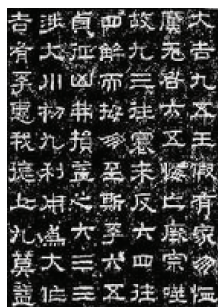 大吉九五王假有家勿恤
厲无咎六五悔亡厥宗噬
故九三往蹇来反六四往
四解而拇朋至斯孚六五
貞征凶井損益之六三三
涉大川初九利用為大作
吉有孚惠我德上九莫益